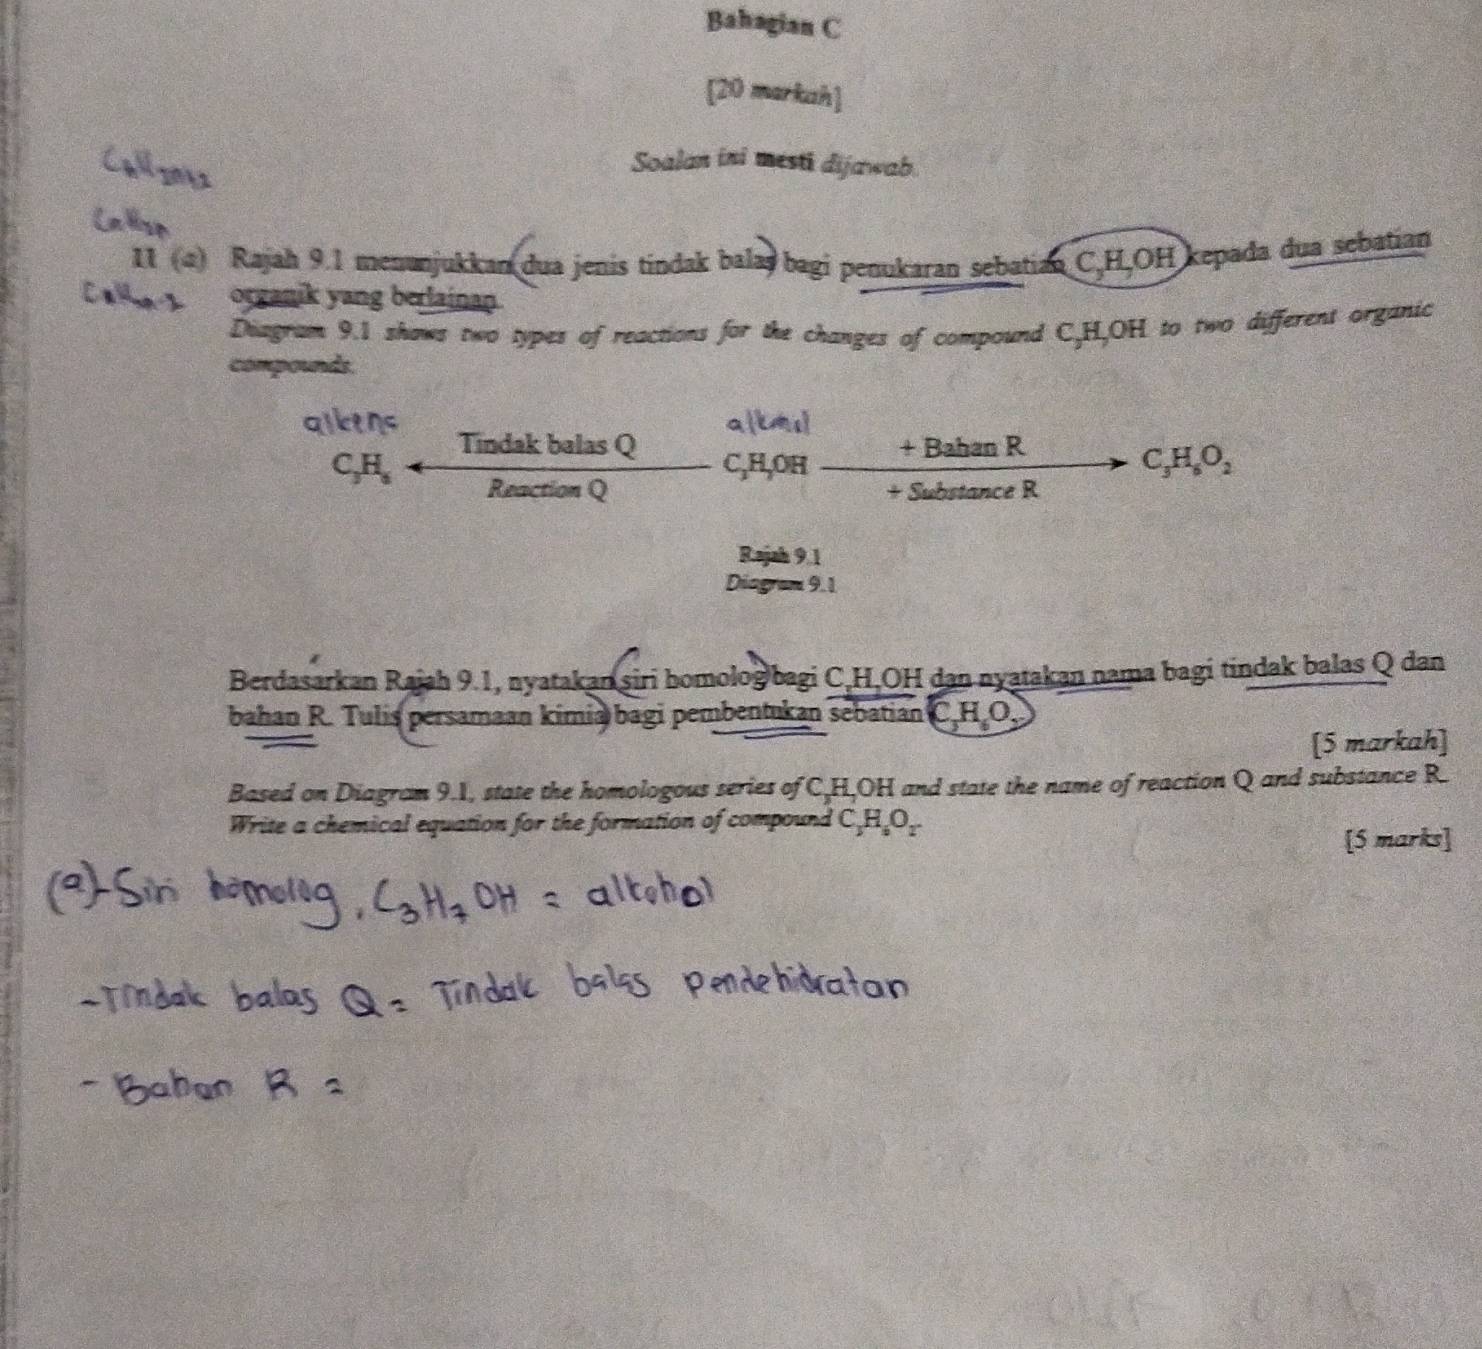 Bahagian C
[20 markah]
Soalan ini mesti dijawab.
CnH2n+2
CnH2n
11 (a) Rajah 9.1 menunjukkan dua jenis tindak balas bagi penukaran sebatian C₃H₇OH kepada dua sebatian
organik yang berlainan.
Diagram 9.1 shows two types of reactions for the changes of compound C₃H₇OH to two different organic
compounds.
alkena alkohol
Tindak balas Q + Bahan R
C₃H₆ C₃H₇OH C₃H₆O₂
Reaction Q + Substance R
Rajah 9.1
Diagram 9.1
Berdasarkan Rajah 9.1, nyatakan siri homolog bagi C₃H₇OH dan nyatakan nama bagi tindak balas Q dan
bahan R. Tulis persamaan kimia bagi pembentukan sebatian C₃H₆O₂.
[5 markah]
Based on Diagram 9.1, state the homologous series of C₃H₇OH and state the name of reaction Q and substance R.
Write a chemical equation for the formation of compound C₃H₆O₂.
[5 marks]
(a)- Siri homolog, C₃H₇OH = alkohol
- Tindak balas Q = Tindak balas pendehidratan
- Bahan R =